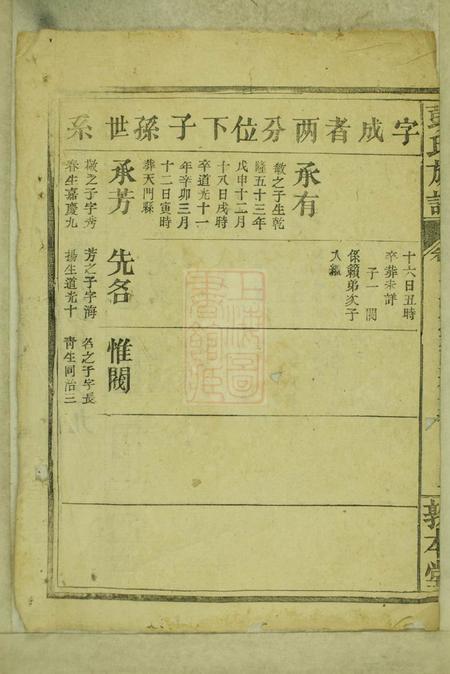 彭氏族譜
敦本堂
字成者两分位下子孫世系
承有
敏之子生乾
隆五十三年
戊申十二月
十八日戌時
卒道光十一
年辛卯三月
十二日寅時
葬天門縣
承芳
敏之子字秀
春生嘉慶九
十六日丑時
卒葬未詳
子一 閥
係賴弟次子
入繼
先名
芳之子字海
揚生道光十
惟閥
名之子字長
青生同治三